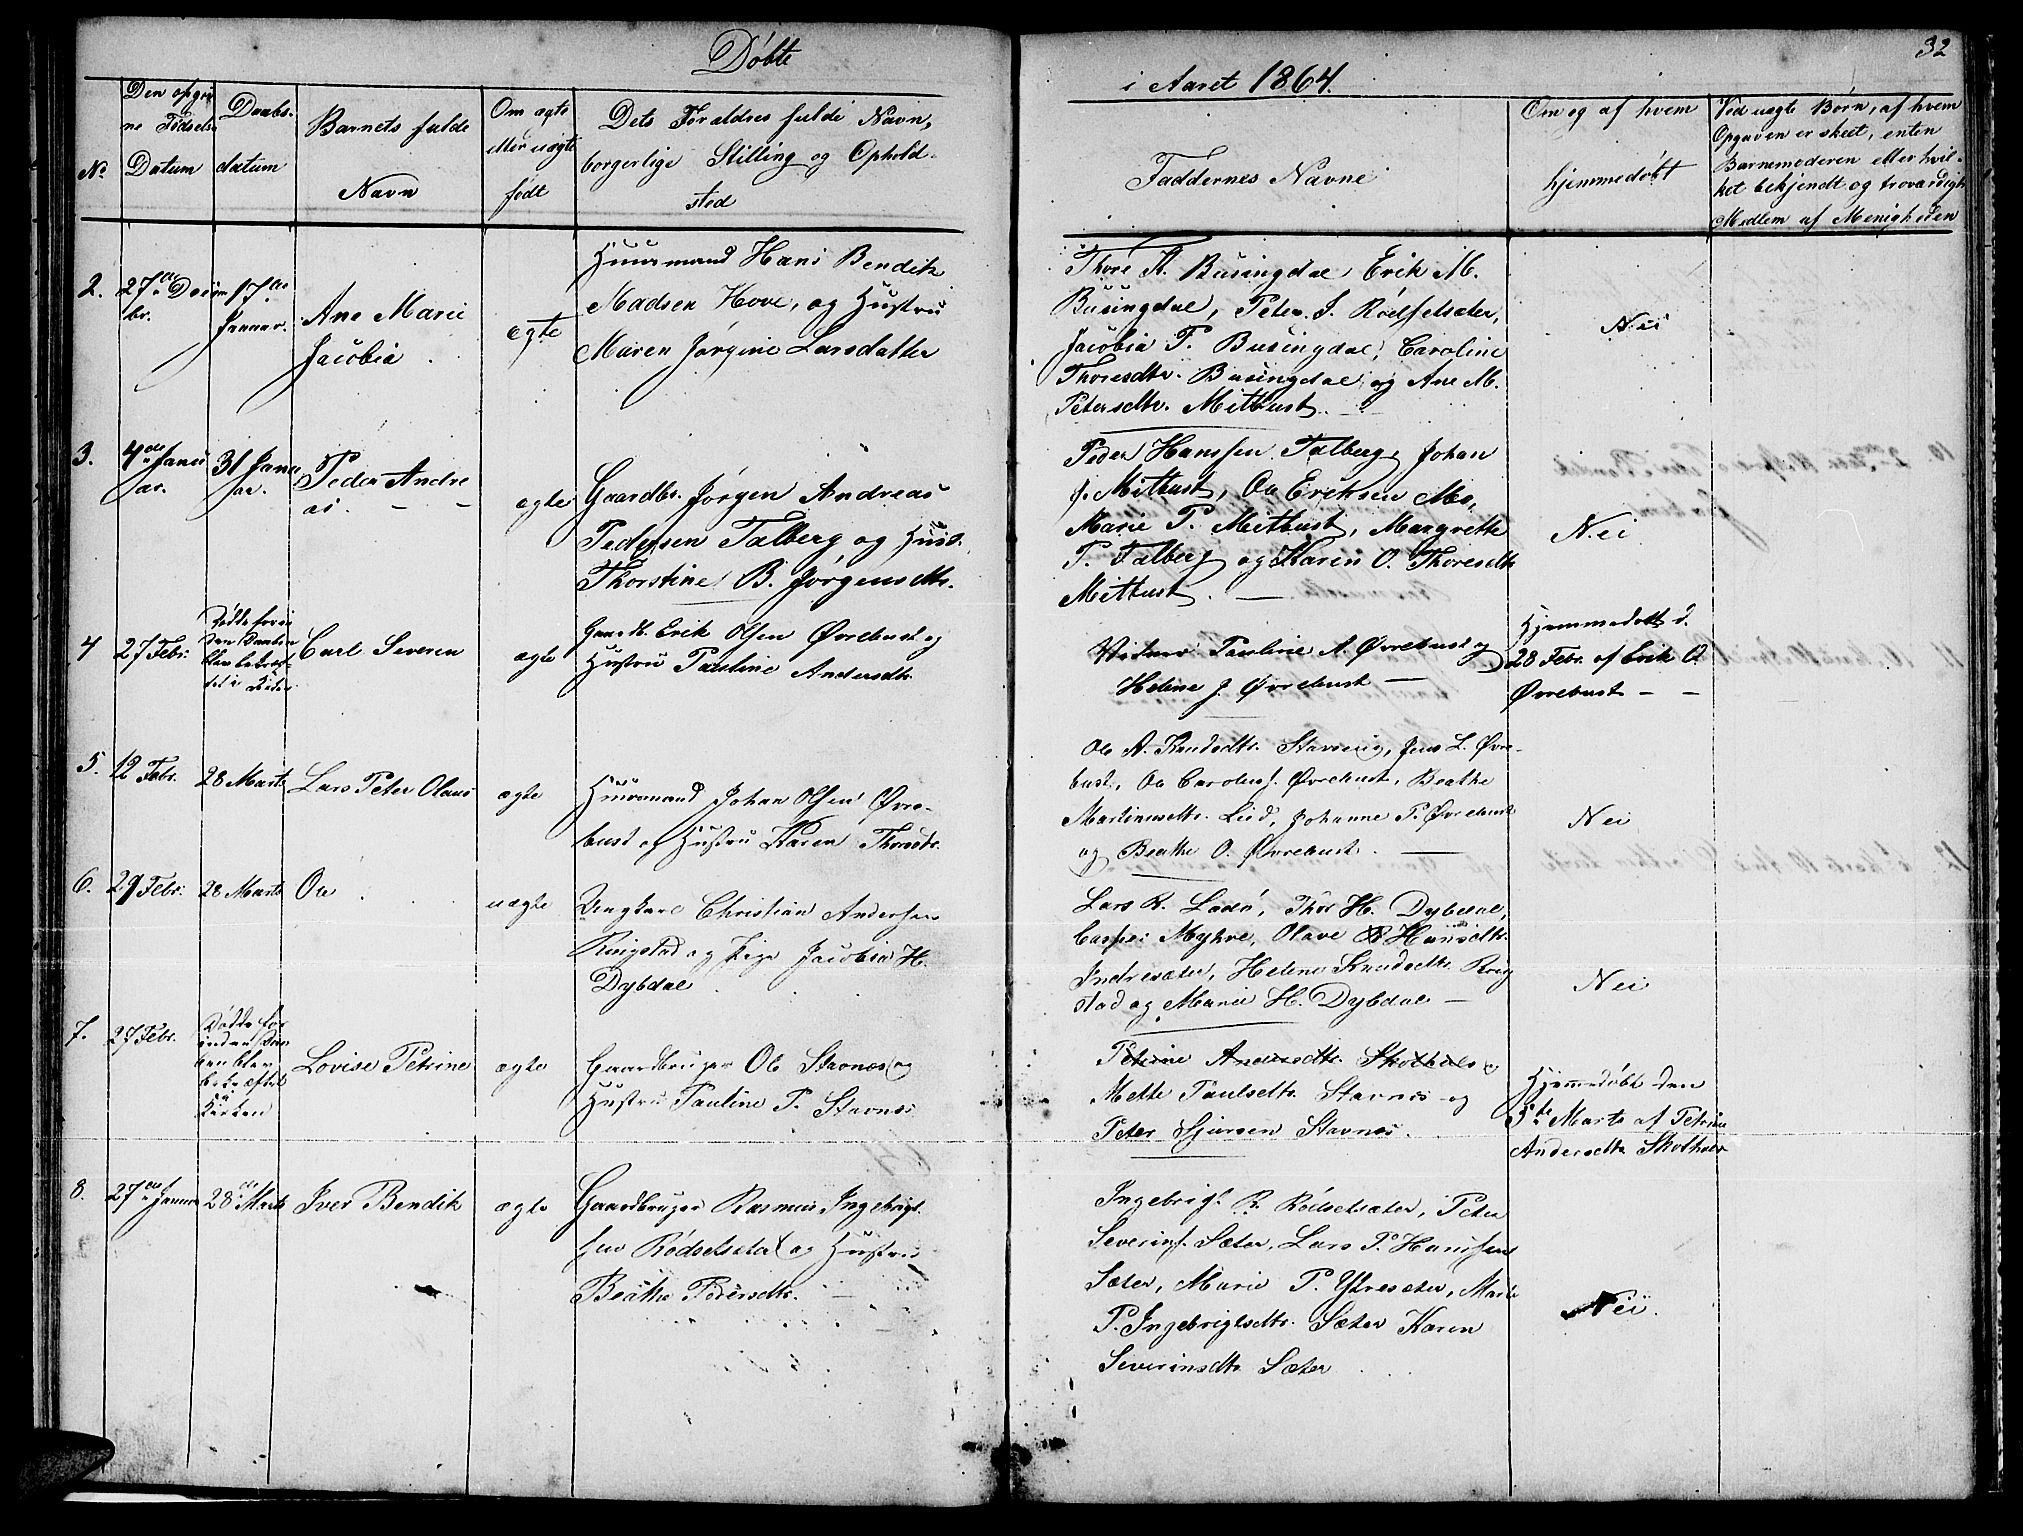 Døbte
i Aaret 1864.
32
No
Den opgiv
ne Fødsels
Datum
Daabs-
datum
Barnets fulde
Navn
Om ægte
eller uægte
født
Dets Forældres fulde Navn,
borgerlige Stilling og Ophold-
sted
Faddernes Navne
Om og af hvem
hjemmedøbt
Ved uægte Børn, af hvem
Opgaven er skeet, enten
Barnemoderen eller hvil-
ket bekjendt og troværdigt
Medlem af Menigheden
2.
27de Decem
br.
17de
Januar.
Ane Marie
Jacobia
ægte
Huusmand Hans Bendik
Madsen Hove, og Hustru
Maren Jørgine Larsdatter
Thore A. Busingdal, Erik M.
Busingdal, Peter J. Rødsetsæter,
Jacobia P. Busingdal, Caroline
Thoresdtr. Busingdal og Ane M.
Petersdtr. Mittust.
Nei
3.
4de Janu
ar.
31 Janu
ar.
Peder Andre
as.
ægte
Gaardbr. Jørgen Andreas
Pedersen Talberg og Hust.
Thorstine B. Jørgensdtr.
Peder Hanssen Talberg, Johan
J. Mittust, Ole Eriksen Mo,
Marie P. Mittust, Margrethe
P. Talberg og Karen O. Thoresdtr
Mittust.
Nei
4
27 Febr.
Døde forin
den Daaben
blev bekræf-
tet i Kirken
Carl Severin
ægte
Gaardb. Erik Olsen Øvrebust og
Hustru Pauline Andersdtr.
Vidner Pauline A. Øvrebust og
Helene J. Øvrebust
Hjemmedøbt d.
28 Febr. af Erik O.
Øvrebust
5.
12 Febr.
28 Marts
Lars Peter Olaus
ægte
Huusmand Johan Olsen Øvre-
bust og Hustru Karen Thoresdtr.
Ole A. Knudsdtr. Stavneng, Jens L. Øvre-
bust, Ole Carolus J. Øvrebust, Beathe
Martinusdtr. Lied, Johanne P. Øvrebust
og Beathe O. Øvrebust.
Nei
6.
29 Febr.
28 Marts
Ole
uægte
Ungkarl Christian Andersen
Ringstad og Pige Jacobia H.
Dybdal
Lars R. Ladø, Thor H. Dybdal,
Casper Myhre, Olave Hansdtr.
Indresæter, Helene Knudsdtr. Ring
stad og Marie H. Dybdal
Nei
7.
27 Febr.
Døde for
inden Daa
ben blev
bekræftet
i
Kirken
Lovise Petrine
ægte
Gaardbruger Ole Stavnes og
Hustru Pauline P. Stavnes
Petrine Andersdtr. Skotholm
Mette Paulsdtr. Stavnes og
Peter Sjursen Stavnes.
Hjemmedøbt den
5te Marts af Petrine
Andersdtr. Skotholm
8.
27de Januar
28de Marts
Iver Bendik
ægte
Gaardbruger Rasmus Ingebrigt-
sen Rødsetsæter og Hustru
Beathe Pedersdtr.
Ingebrigt R. Rødsetsæter, Peter
Severins. Sæter, Lars P. Hanssens
Sæter, Marie P. Ytresæter, Marte
P. Ingebrigtsdtr. Sæter Karen
Severinsdtr. Sæter
Nei.